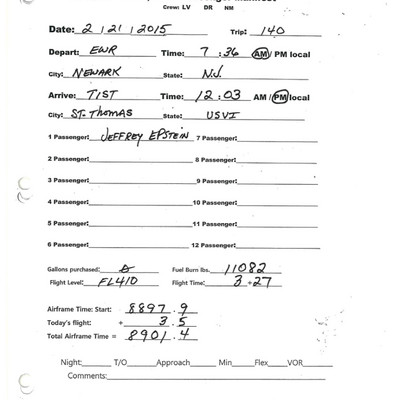 Crew: LV DR NM
Date: 2 / 21 / 2015 Trip: 140
Depart: EWR Time: 7 : 36 AM / PM local
City: NEWARK State: N.J.
Arrive: TIST Time: 12 : 03 AM / PM local
City: ST. THOMAS State: USVI
1 Passenger: JEFFREY EPSTEIN 7 Passenger:
2 Passenger: 8 Passenger:
3 Passenger: 9 Passenger:
4 Passenger: 10 Passenger:
5 Passenger: 11 Passenger:
6 Passenger: 12 Passenger:
Gallons purchased: Fuel Burn lbs. 11082
Flight Level: FL410 Flight Time: 3 + 27
Airframe Time: Start: 8897 . 9
Today's flight: + 3 . 5
Total Airframe Time = 8901 . 4
Night: T/O Approach Min Flex VOR
Comments: